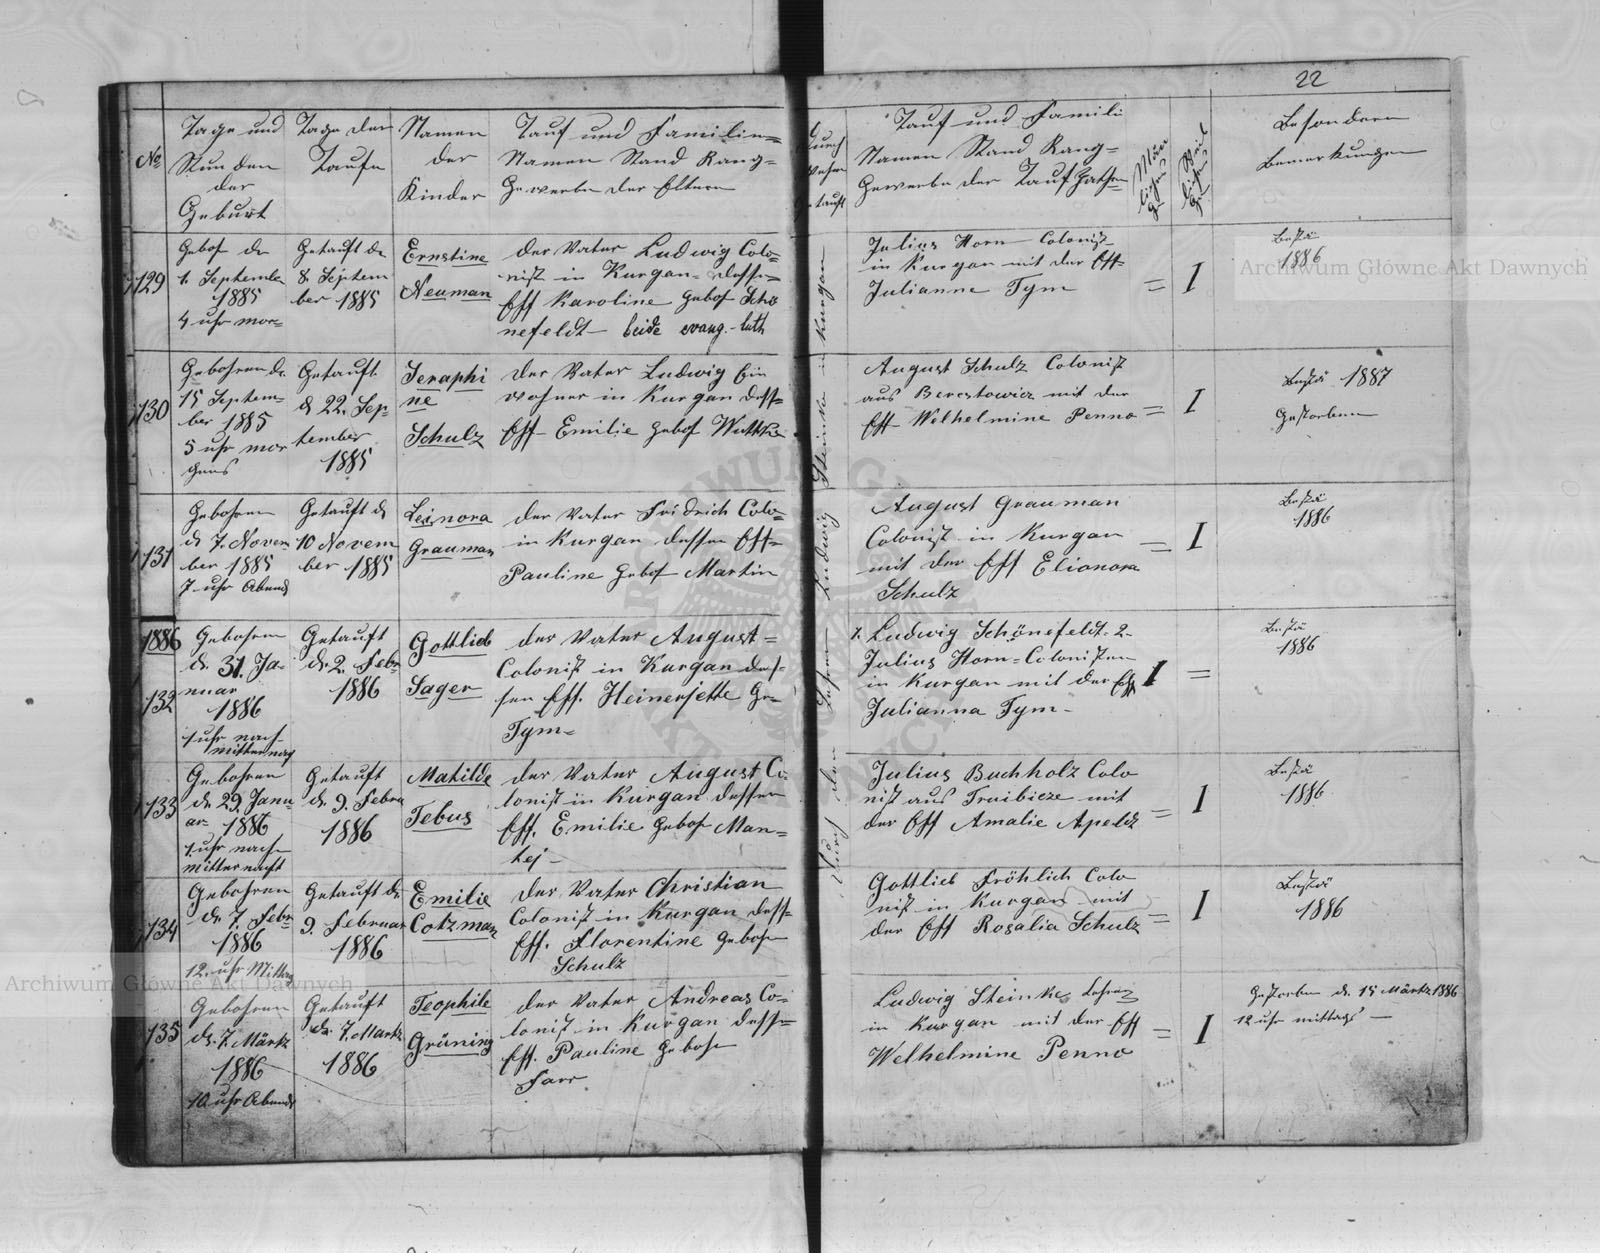 22
No
Tage und
Stunden
der
Geburt
Tage der
Taufe
Namen
der
Kinder
Tauf und Familien=
Namen Stand Rang=
Gewerbe der Eltern
Durch
wehm
getauft
Tauf und Famili
Namen Stand Rang=
Gewerbe der Taufpathen
Besondere
Bemerkungen
129
Gebor de
1. September
1885
4 uhr mor=
Getauft de
8. Septem
ber 1885
Ernstine
Neuman
der Vater Ludwig Colo=
nist in Kurgan= dessen
Eff Karoline gebor Schö
nefeldt- beide evang.-luth
Julius Horn Colonist
in Kurgan mit der Eff=
Julianne Tym
= I
Bestä
1886
130
Gebohren de.
15 Septem=
ber 1885
5 uhr mor
gens
Getauft
d 22. Sep=
tember
1885
Seraphi
ne
Schulz
der Vater Ludwig Ein
wohner in Kurgan dess=
Eff Emilie gebor Wuttke
August Schulz Colonist
aus Berestowiez mit der
Eff Welhelmine Penno
= I
Bestä 1887
Gestorben
131
Gebohren
d 7. Novem
ber 1885
7 uhr Abends
Getauft d
10 Novem
ber 1885
Leinora
Grauman
der Vater Fridrich Colo=
in Kurgan dessen Eff=
Pauline gebor Martin
August Grauman
Colonist in Kurgan
mit der Eff Elionora
Schulz
= I
Bestä
1886
1886
132
Gebohren
d. 31. Ja=
nuar
1886
1 uhr nach
mitternag
Getauft
d. 2. Febr
1886
Gottlieb
Sager
der Vater August=
Colonist in Kurgan des=
sen Eff. Heineriette Ge=
Tym=
1. Ludwig Schönefeldt. 2.
Julius Horn=Colonisten
in Kurgan mit der Eff
Julianna Tym-
I =
Bestä
1886
133
Gebohren
d. 29. Janu
ar 1886
1. uhr nach
mitternacht
Getauft
d. 9. Febru
1886
Matilde
Tebus
der Vater August Co
lonist in Kurgan dessen
Eff. Emilie gebor Man=
tej-
Julius Buchholz Colo
nist aus Truibieze mit
der Eff Amalie Apeldz
= I
Bestä
1886
134
Gebohren
d. 7. Febr
1886
12. uhr Mittag
Getauft d.
9. Februar
1886
Emilie
Cotzman
der Vater Christian
Colonist in Kurgan dess=
Eff. Florentine gebohr
Schulz
Gottlieb Fröhlich Colo
nist in Kurgan mit
der Eff Rosalia Schulz
= I
Bestä
1886
135
Gebohren
d. 7. Märtz
1886
10 uhr Abends
Getauft
d. 7. Martz
1886
Teophile
Grüning
der Vater Andreas Co=
lonist in Kurgan dess=
Eff. Pauline gebohr
Farr
Ludwig Steinke Lehrer
in Kurgan mit der Eff
Welhelmine Penno
= I
Gestorben d. 15 Märtz 1886
12 uhr mittags -
Durch den Lehrer Ludwig Steinke in Kurgan
Archiwum Główne Akt Dawnych
Archiwum Główne Akt Dawnych